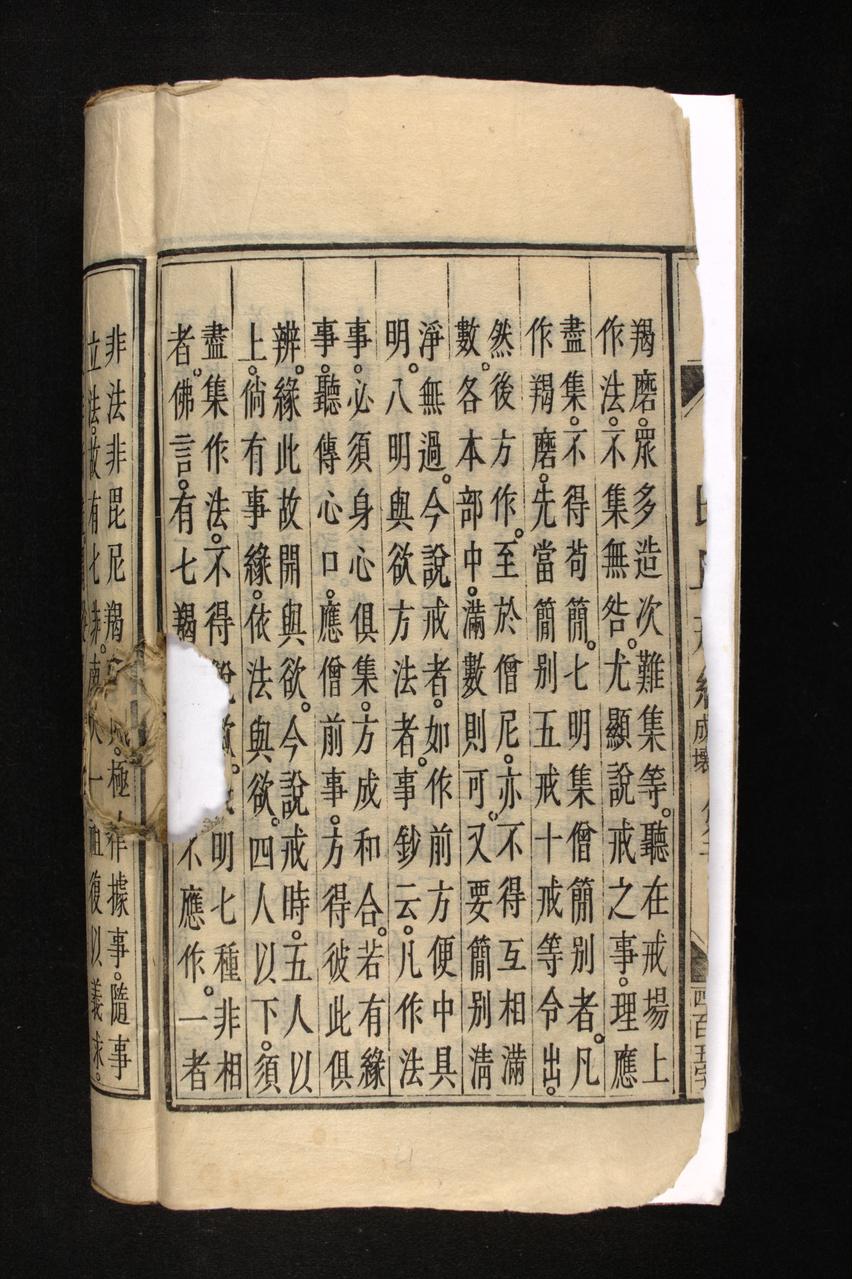 成壞
羯磨。眾多造次難集等。聽在戒場上
作法。不集無咎。尤顯說戒之事。理應
盡集。不得苟簡。七明集僧簡別者。凡
作羯磨。先當簡別五戒十戒等令出。
然後方作。至於僧尼。亦不得互相滿
數。各本部中。滿數則可。又要簡別清
淨無過。今說戒者。如作前方便中具
明。八明與欲方法者。事鈔云。凡作法
事。必須身心俱集。方成和合。若有緣
事。聽傳心口。應僧前事。方得彼此俱
辨。緣此故開與欲。今說戒時。五人以
上。倘有事緣。依法與欲。四人以下。須
盡集作法。不得明七種非相
者。佛言。有七羯不應作。一者
非法非毘尼羯極作據事。隨事
立法。故有七非。一祖復以義求。